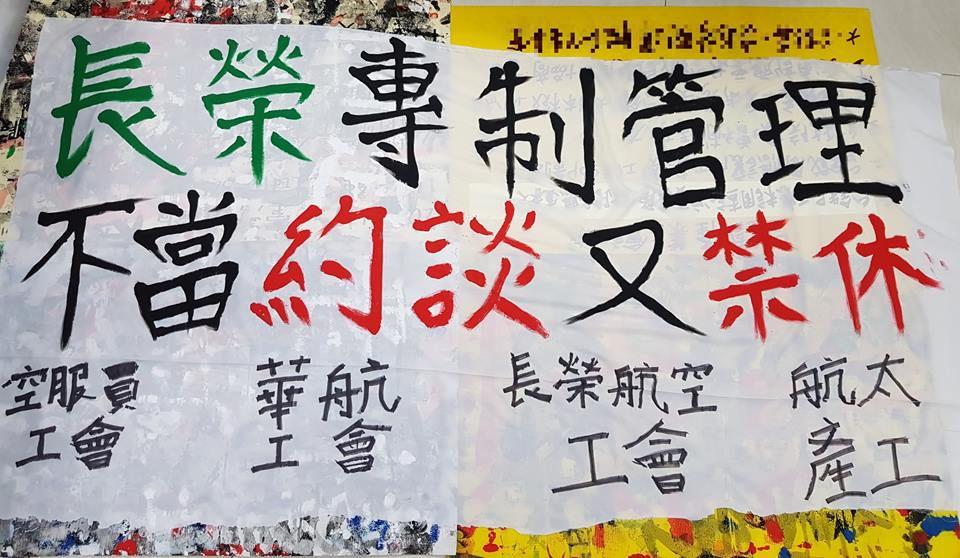 長榮專制管理
不當約談又禁休
空服員 華航 長榮航空 航太
工會 工會 工會 產工